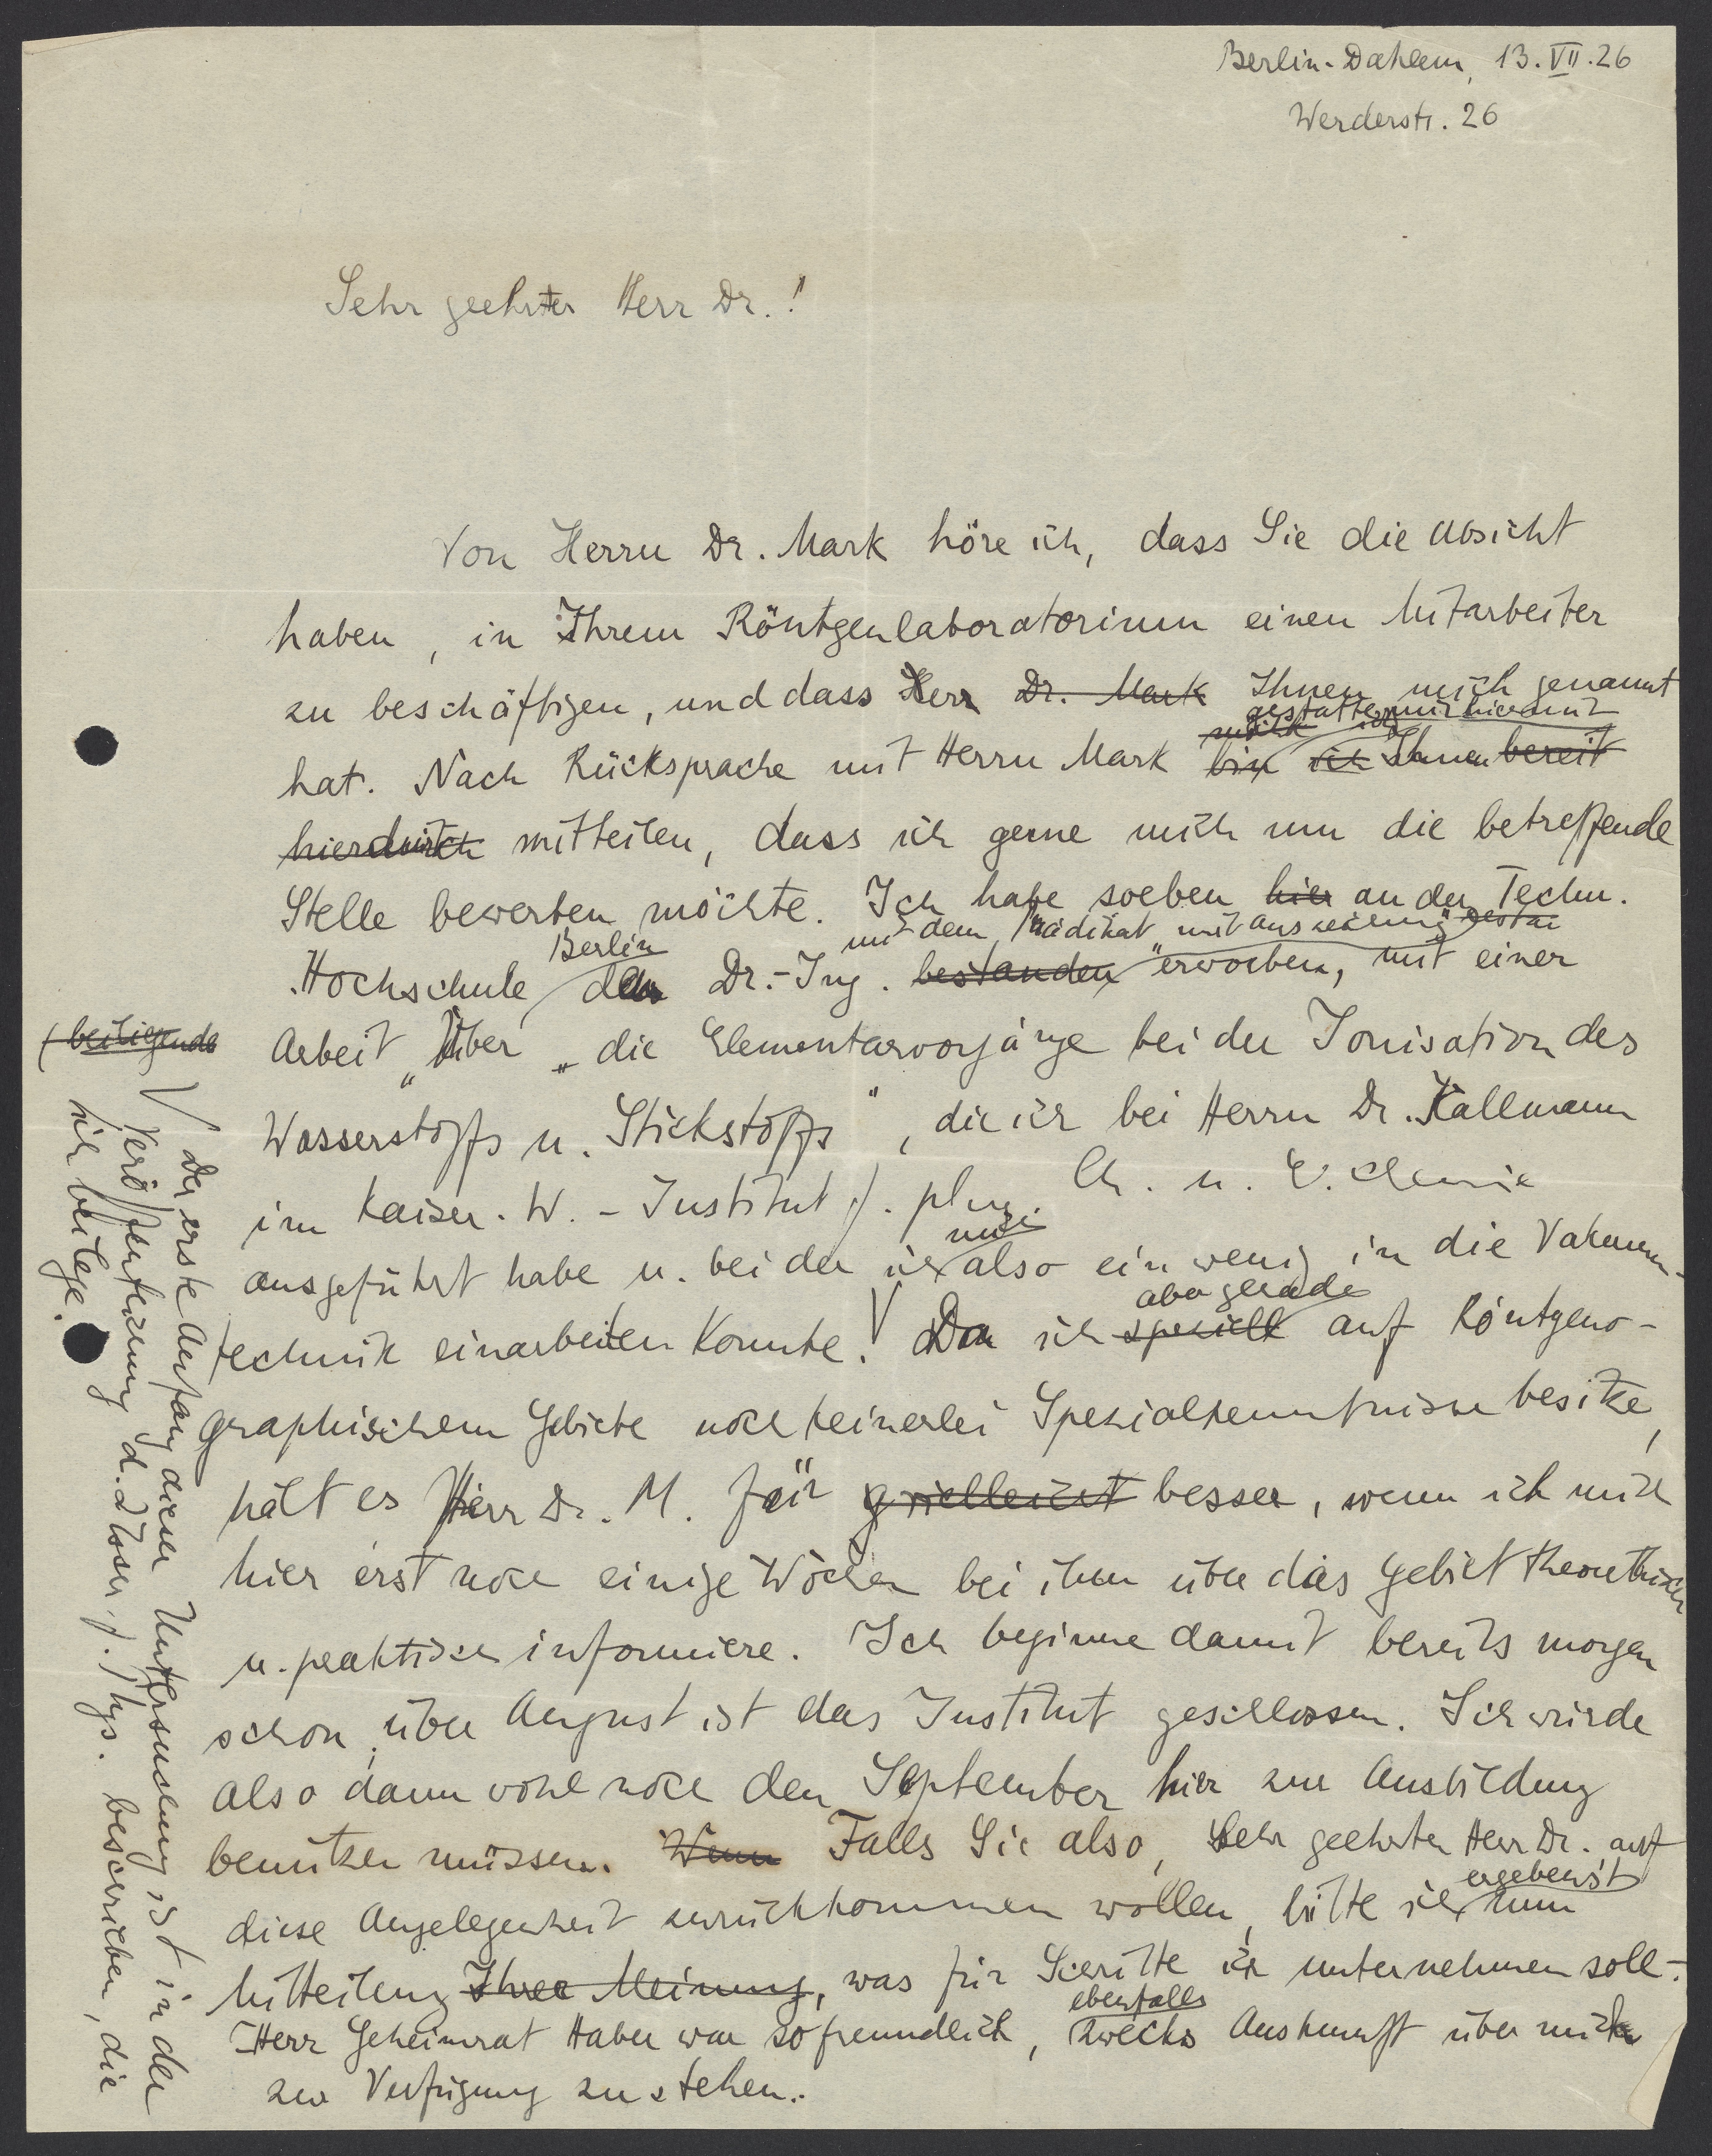 Berlin-Dahlem, 13.VII.26
Werderstr. 26
Sehr geehrter Herr Dr.!
Von Herrn Dr. Mark höre ich, dass Sie die Absicht
haben, in Ihrem Röntgenlaboratorium einen Mitarbeiter
zu beschäftigen, und dass Herr Dr. Mark Ihnen mich genannt
gestatte mir hiermit
hat. Nach Rücksprache mit Herrn Mark bin ich Ihnen bereit
hierdurch mitteilen, dass ich gerne mich um die betreffende
Stelle bewerben möchte. Ich habe soeben hier an der Techn.
Berlin mit dem Prädikat mit Auszeichnung"
Hochschule den Dr.-Ing. bestanden erworben, mit einer
beiliegende
Arbeit „Über „die Elementarvorgänge bei der Ionisation des
Wasserstoffs u. Stickstoffs", die ich bei Herrn Dr. Kallmann
im Kaiser. W. - Institut f. phys. Ch. u. E. Chemie
mich
ausgeführt habe u. bei der ich also ein wenig in die Vakuum-
aber gerade
technik einarbeiten konnte. Da ich speziell auf Röntgeno-
graphischem Gebiete noch keinerlei Spezialkenntnisse besitze,
hält es Herr Dr. M. für vielleicht besser, wenn ich mich
hier erst noch einige Wochen bei ihm über das Gebiet theoretisch
u. praktisch informiere. Ich beginne damit bereits morgen
schon, über August ist das Institut geschlossen. Ich würde
also dann wohl noch den September hier zur Ausbildung
benützen müssen. Wenn Falls Sie also, sehr geehrter Herr Dr. auf
ergebenst
diese Angelegenheit zurückkommen wollen, bitte ich um
Mitteilung Ihrer Meinung, was für Schritte ich unternehmen soll.
ebenfalls
Herr Geheimrat Haber war so freundlich, zwecks Auskunft über mich
zur Verfügung zu stehen.
Der erste Anfang dieser Untersuchung ist in der
Veröffentlichung d. Ztschr. f. Phys. beschrieben, die
ich beilege.